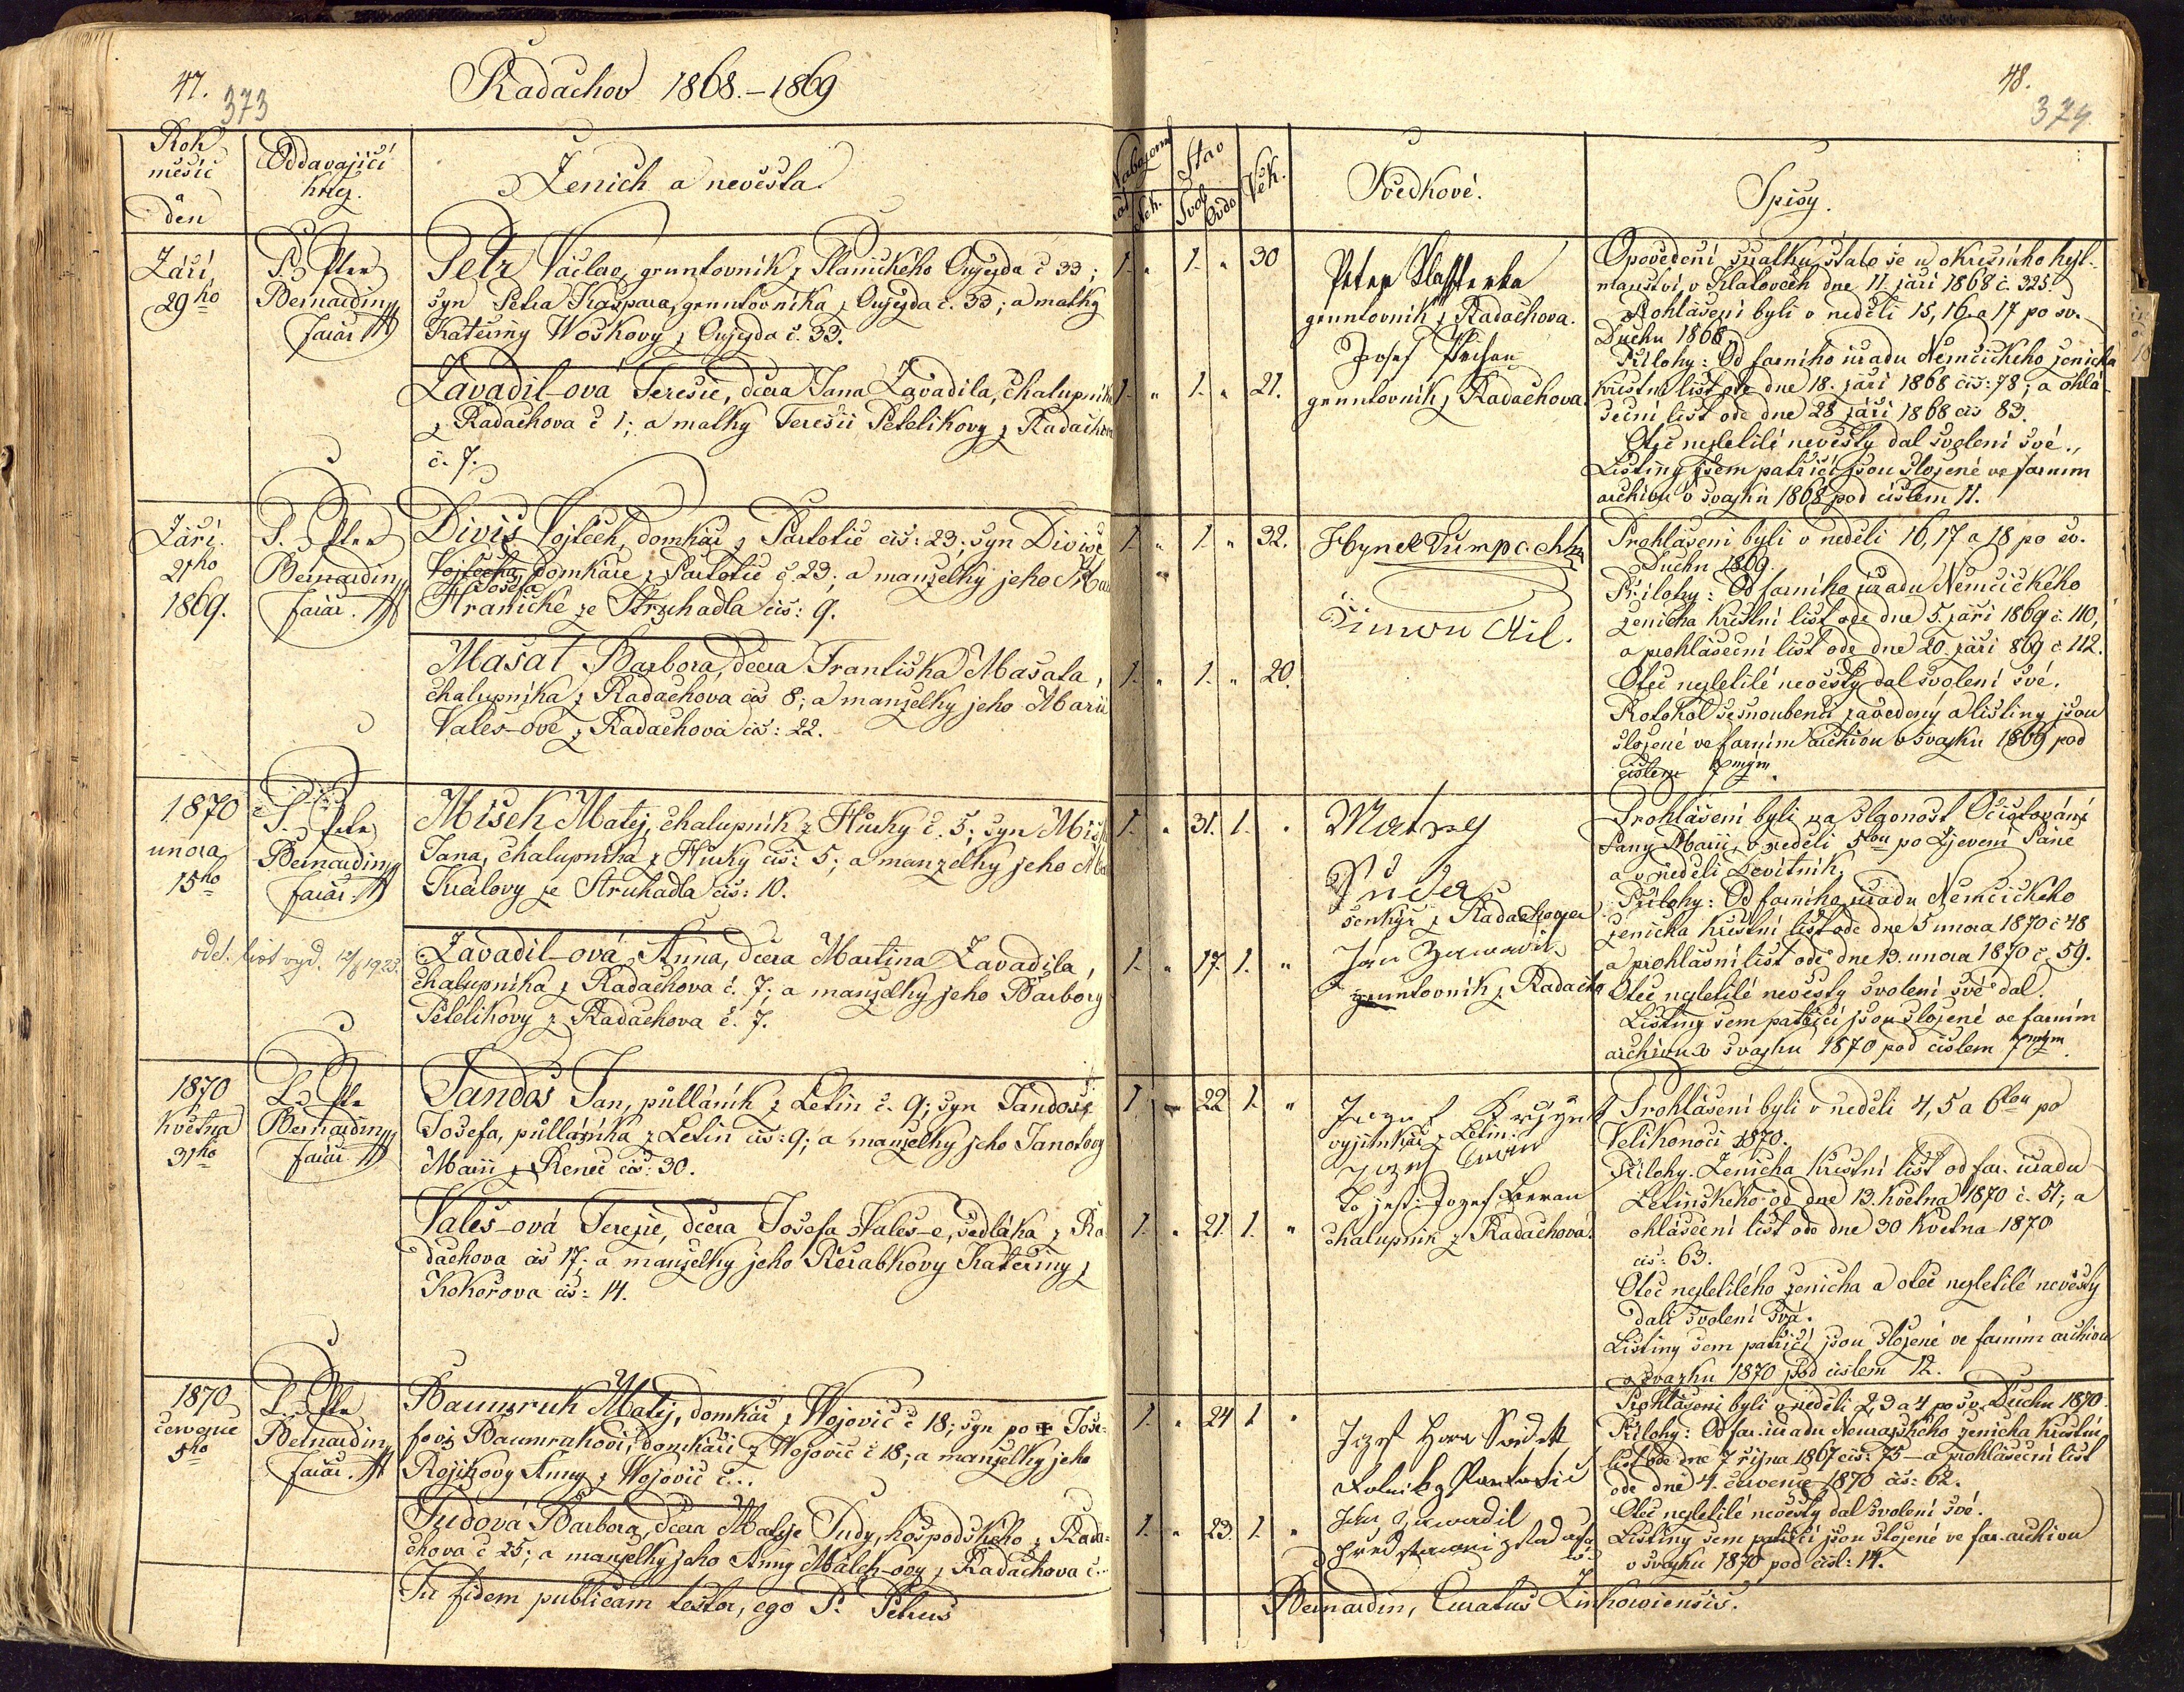 47.
373
Radachov 1868.–1869
Rok
měsíc
den
Oddavající
kněz.
Ženich a nevěsta.
Září
29ho
P. Petr
Bernardin
farář
Petr Václav, gruntovník z Planického Oujezda č 33;
syn Petra Kašpara, gruntovníka z Oujezda č. 33; a matky
Kateřiny Woškovy z Oujezda č. 33.
Zavadil-ová Teresie, dcera Jana Zavadila, chalupníka
z Radachova č 1; a matky Teresii Petelikovy z Radachova
č. 7.
Září
21ho
1869.
P. Petr
Bernardin
farář.
Diviš Vojtěch, domkář z Partotic čís: 23; syn Diviše
Vojtěcha, domkáře z Partotic č. 23; a manželky jeho
Josefa
Hranické ze Struhadla čís: 9.
Mašat Barbora, dcera Františka Mašata,
chalupníka z Radachova čís 8; a manželky jeho Marii
Valeš-ové z Radachova čís: 22.
1870
unora
15ho
P. Petr
Bernardin
farář.
odd. list vyd. 1923.
Míšek Matěj, chalupník z Hůrky č. 5; syn
Jana, chalupníka z Hůrky čís: 5; a manželky jeho
Králový ze Struhadla čís: 10.
Zavadil-ová Anna, dcera Martina Zavadila,
chalupníka z Radachova č. 7; a manželky jeho Barbory
Petelikovy z Radachova č. 7.
1870
května
31ho
P. Petr
Bernardin
farář
Tandoš Jan, půlláník z Letin č. 9; syn Tandoše
Josefa, půlláníka z Letin čís: 9; a manželky jeho
Marii z Reneč čís: 30.
Valeš-ová Terezie, dcera Josefa Valeš-e, sedláka z Ra-
dachova čís 17; a manželky jeho Řeřabkovy Kateřiny z
Kokořova čís: 14.
1870
července
5ho
P. Petr
Bernardin
farář.
Baumruk Matěj, domkář z Wojovic č 18; syn po Jose-
fovi Baumrukovi, domkáři z Wojovic č 18; a manželky jeho
Rojíkovy Anny z Wojovic č...
Tudová Barbora, dcera Matěje Tudy, hospodského z Rada-
chova č 25; a manželky jeho Anny Málek-ovy z Radachova č...
In fidem publicam testor, ego P. Petrus
48.
374
Stav
Věk.
Svědkové.
Spisy.
1. " 1. " 30
1. " 1. " 21.
gruntovník z Radachova.
Josef
gruntovník z Radachova.
Opovědění sňatku stalo se u okresního hejt-
manství v Klatovech dne 11. září 1868 č. 325.
Prohlášení byli v neděli 15, 16. a 17 po sv.
Duchu 1868.
Přílohy: Od farního úřadu Němčického ženicha
křestní list ode dne 18. září 1868 čís: 78; a ohlá-
šeční list ode dne 28 září 1868 čís 83.
Otec nezletilé nevěsty dal svolení své.
Listiny sem patřící jsou složené ve farním
archivu v svazku 1868 pod číslem 11.
1. " 1. " 32.
1. " 1. " 20.
Hynek
Šimon
Prohlášeni byli v neděli 16, 17 a 18 po sv.
Duchu 1869.
Přílohy: Od farního úřadu Němčického
ženicha křestní list ode dne 5. září 1869 č. 110,
a prohlášeční list ode dne 20. září 869 č. 112.
Otec nezletilé nevěsty dal svolení své.
Protokol se snoubenci zavedený a listiny jsou
složené ve farním archivu v svazku 1869 pod
číslem 7mým.
1. " 31. 1. "
1. " 17. 1. "
Matěg
Tuda
šenkýř z Radachova
Jan Zawadil
gruntovník z Radacho
Prohlášeni byli na slavnost Očišťování
Panny Marii, v neděli 5tou po Zjevení Páně
a v neděli Devítník.
Přílohy: Od farního úřadu Němčického
ženicha křestní list ode dne 5 unora 1870 č 48
a prohlášní list ode dne 13. unora 1870 č. 59.
Otec nezletilé nevěsty svolení své dal.
Listiny sem patřící jsou složené ve farním
archivu v svazku 1870 pod číslem 7mým.
1. " 22 1. "
1. " 21. 1. "
vyjimkář z Letin:
To jest: Jozef Beran
chalupník z Radachova.
Prohlášeni byli v neděli 4, 5 a 6tou po
Velikonoci 1870.
Přílohy. Ženicha křestní list od far. úřadu
Letinského od dne 13. května 1870 č. 51; a
ohlášeční list ode dne 30 května 1870
čís: 63.
Otec nezletilého ženicha a otec nezletilé nevěsty
dali svolení svá.
Listiny sem patřící jsou složené ve farním archivu
v svazku 1870 pod číslem 12.
1. " 24 1 "
1. " 23. 1. "
Jozef
Rolník z Partotic
Jan Zawadil
Prohlášeni byli v neděli 2, 3 a 4 po sv. Duchu 1870.
Přílohy: Od far. úřadu Neurazského ženicha křestní
list ode dne 7 října 1867 čís: 75 – a prohlášeční list
ode dne 4. července 1870 čís: 62.
Otec nezletilé nevěsty dal svolení své.
Listiny sem patřící jsou složené ve far. archivu
v svazku 1870 pod čísl: 14.
Bernardin, Curatus Zinkowiensis.